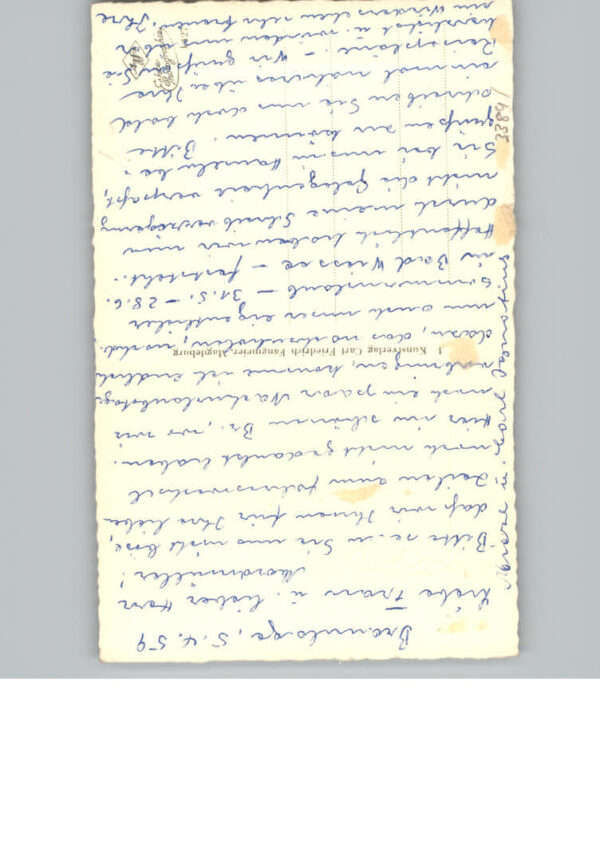 Braunlage, 5.4.59
Liebe Frau u. lieber Herr
Nordmüller!
Bitte se.n Sie uns nicht böse,
daß wir Ihnen für Ihre lieben
Zeilen zum Jahreswechsel
noch nicht gedankt haben.
Hier im schönen Br., wo wir
noch ein paar Nachurlaubstage
verbringen, komme ich endlich
dazu, das nachzuholen,
nun auch unser eigentlicher
Sommerurlaub – 31.5. – 28.6.
in Bad Wiessee – feststeht.
Hoffentlich haben wir nun
durch meine Schreibverzögerung
nicht die Gelegenheit verpaßt,
Sie bei uns in Hameln be-
grüßen zu können. Bitte
schreiben Sie uns doch bald
einmal näheres über Ihre
Reisepläne. – Wir grüßen Sie
herzlichst u. würden uns über
ein Wiedersehen sehr freuen. Ihre
1 Kunstverlag Carl Friedrich Fangmeier, Magdeburg
Echte
Photographie
3384